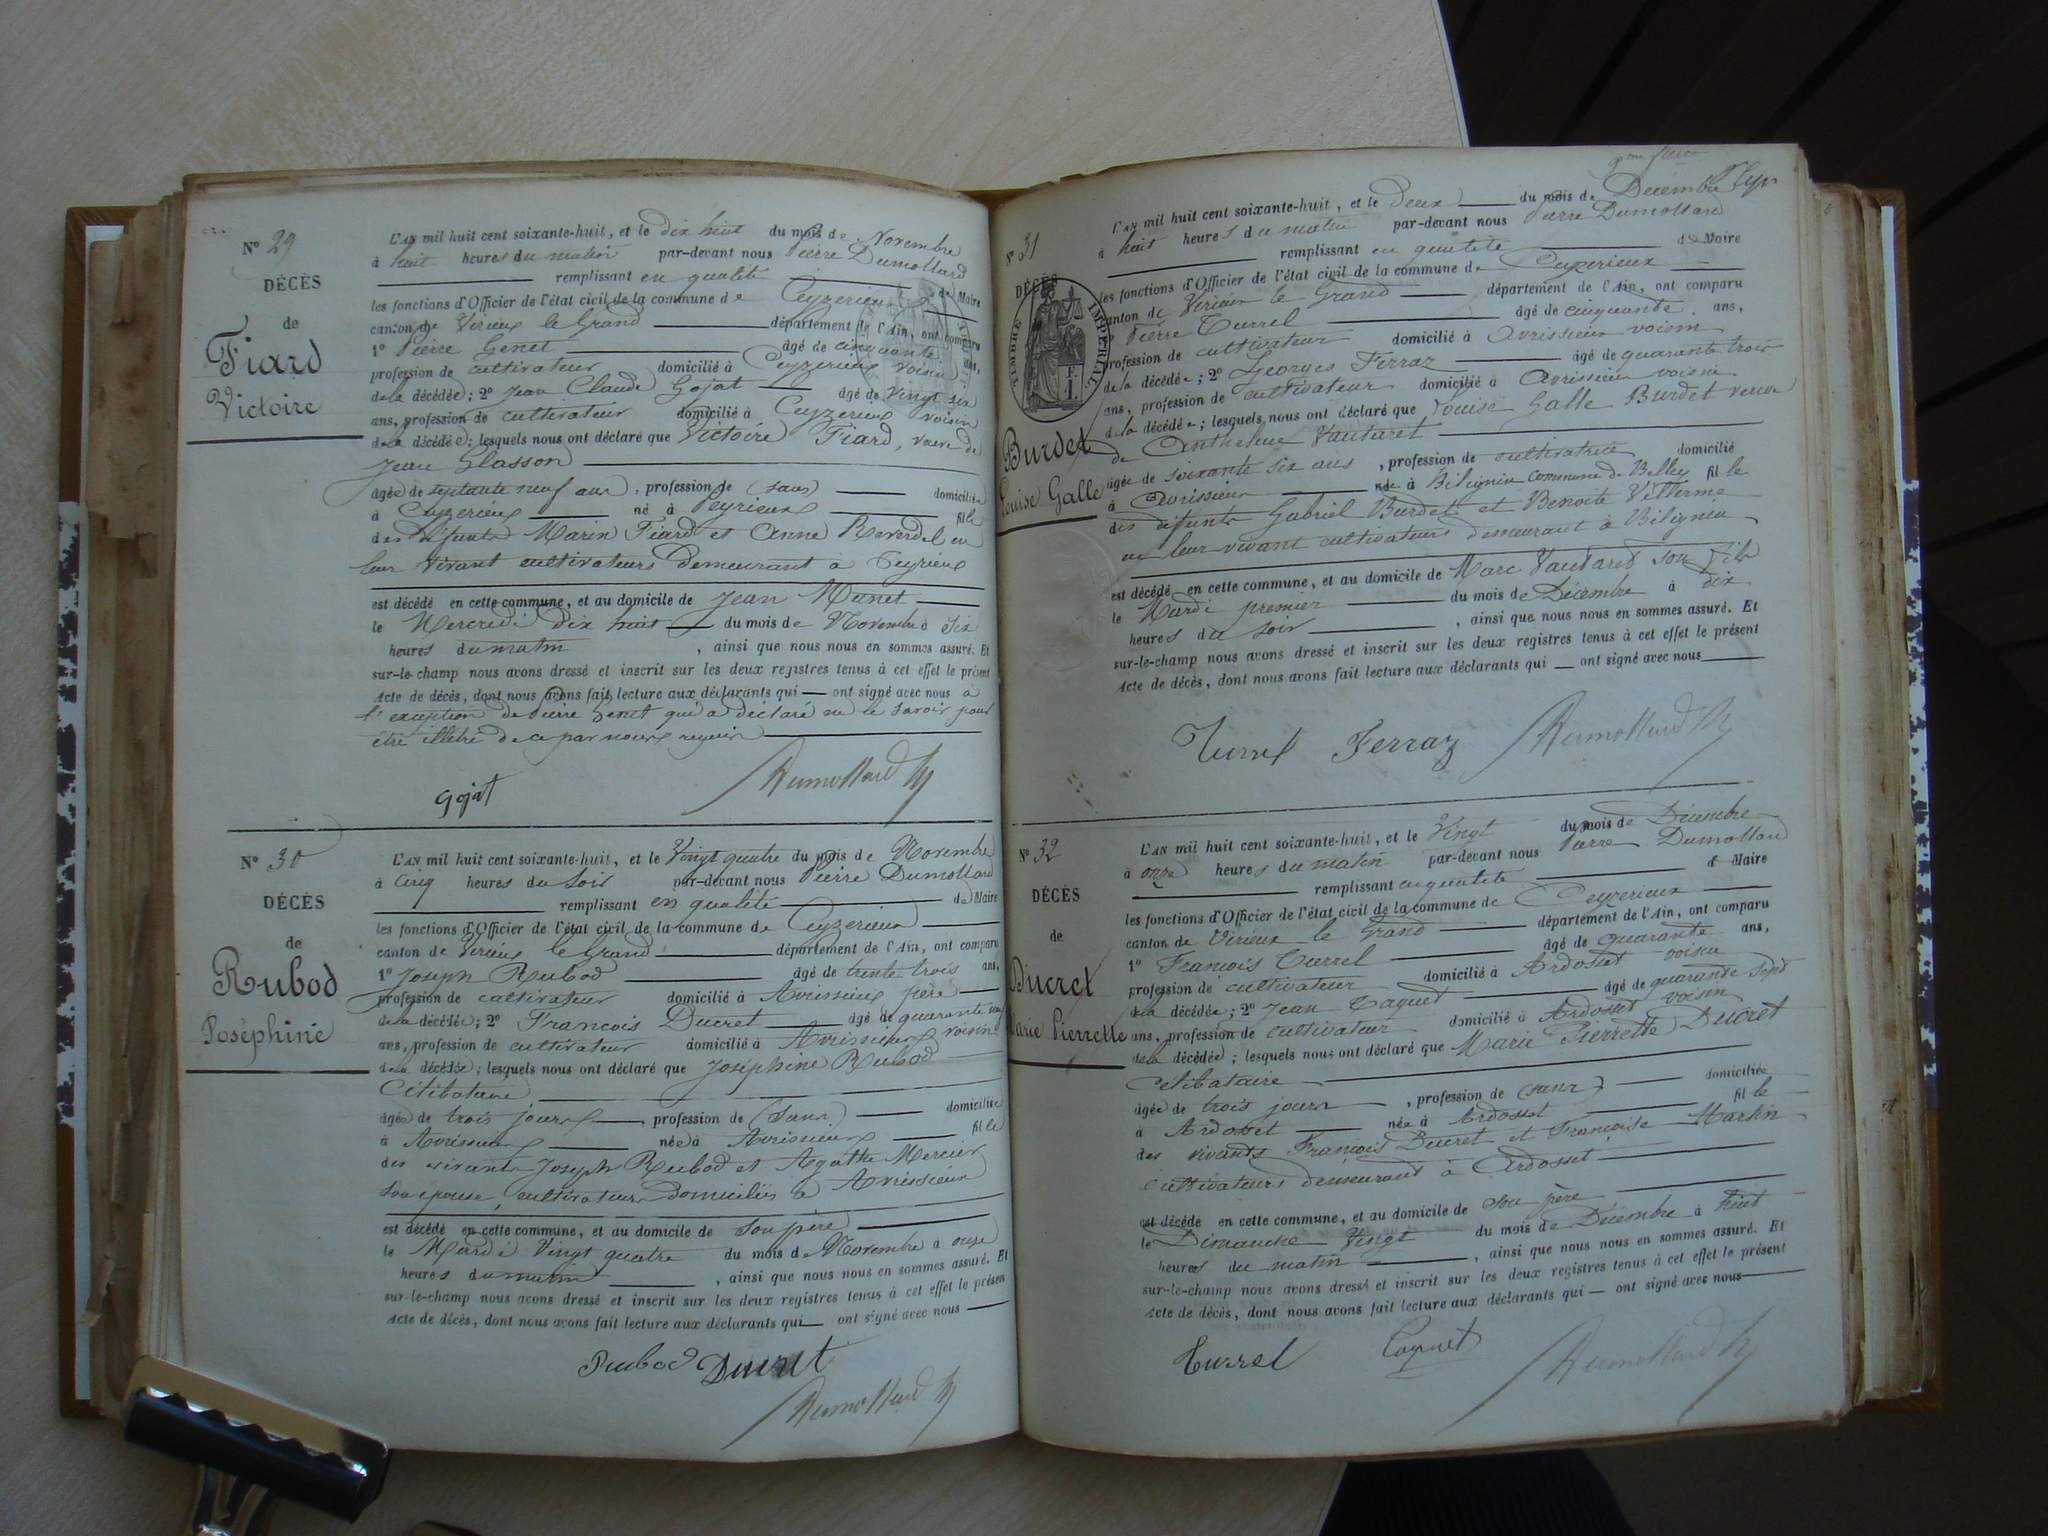 N° 29
DÉCÈS
de
Fiard
Victoire
L'AN mil huit cent soixante-huit, et le dix huit du mois de Novembre
à huit heures du matin par-devant nous Pierre Dumollard
remplissant en qualité de Maire
les fonctions d'Officier de l'état civil de la commune de Ceyzerieu
canton de Virieux le Grand département de l'Ain, ont comparu
1° Pierre Genet âgé de cinquante ans,
profession de cultivateur domicilié à Ceyzerieux voisin
de la décédée; 2° Jean Claude Gojat âgé de vingt six
ans, profession de cultivateur domicilié à Ceyzerieux voisin
de la décédée; lesquels nous ont déclaré que Victoire Fiard, veuve de
Jean Glasson
âgée de septante neuf ans, profession de (sans) domiciliée
à Ceyzerieux né à Peyrieux fille
des défunts Marin Fiard et Anne Reverdel en
leur vivant cultivateurs demeurant à Peyrieux
est décédé en cette commune, et au domicile de Jean Munet
le Mercredi dix huit du mois de Novembre à six
heures du matin, ainsi que nous nous en sommes assuré. Et
sur-le-champ nous avons dressé et inscrit sur les deux registres tenus à cet effet le présent
Acte de décès, dont nous avons fait lecture aux déclarants qui — ont signé avec nous à
l'exception de Pierre Genet qui a déclaré ne le savoir pour
être illétré de ce par nous requis
Gojat Dumollard
N° 30
DÉCÈS
de
Rubod
Joséphine
L'AN mil huit cent soixante-huit, et le Vingt quatre du mois de Novembre
à cinq heures du soir par-devant nous Pierre Dumollard
remplissant en qualité de Maire
les fonctions d'Officier de l'état civil de la commune de Ceyzerieu
canton de Virieux le Grand département de l'Ain, ont comparu
1° Joseph Rubod âgé de trente trois ans,
profession de cultivateur domicilié à Avrissieux père
de la décédée; 2° François Ducret âgé de quarante
ans, profession de cultivateur domicilié à Avrissieux voisin
de la décédée; lesquels nous ont déclaré que Joséphine Rubod
Célibataire
âgée de trois jours profession de (sans) domiciliée
à Avrissieux née à Avrissieux fille
des vivants Joseph Rubod et Agathe Mercier
son épouse, cultivateurs domiciliés à Avrissieux
est décédé en cette commune, et au domicile de son père
le Mardi Vingt quatre du mois de Novembre à onze
heures du matin, ainsi que nous nous en sommes assuré. Et
sur-le-champ nous avons dressé et inscrit sur les deux registres tenus à cet effet le présent
Acte de décès, dont nous avons fait lecture aux déclarants qui — ont signé avec nous
Rubod Ducret
Dumollard
N° 31
DÉCÈS
TIMBRE IMPÉRIAL
F.
1.
Burdet
Louise Galle
L'AN mil huit cent soixante-huit, et le deux du mois de Décembre
à huit heures du matin par-devant nous Pierre Dumollard
remplissant en qualité de Maire
les fonctions d'Officier de l'état civil de la commune de Ceyzerieux
canton de Virieux le Grand département de l'Ain, ont comparu
Pierre Turrel âgé de cinquante ans,
profession de cultivateur domicilié à Avrissieu voisin
de la décédée; 2° Georges Ferraz âgé de quarante trois
ans, profession de cultivateur domicilié à Avrissieu voisin
de la décédée; lesquels nous ont déclaré que Louise Galle Burdet veuve
de Anthelme Vautaret
âgée de soixante six ans, profession de cultivatrice domicilié
à Avrissieu née à Bélignin commune de Belley fille
des défunts Gabriel Burdet et Benoite Vetterme
en leur vivant cultivateurs demeurant à Béligneu
est décédé en cette commune, et au domicile de Marc Vautaret son fils
le Mardi premier du mois de Décembre à dix
heures du soir, ainsi que nous nous en sommes assuré. Et
sur-le-champ nous avons dressé et inscrit sur les deux registres tenus à cet effet le présent
Acte de décès, dont nous avons fait lecture aux déclarants qui — ont signé avec nous
Turrel Ferraz Dumollard
N° 32
DÉCÈS
de
Ducret
Marie Pierrette
L'AN mil huit cent soixante-huit, et le Vingt du mois de Décembre
à onze heures du matin par-devant nous Pierre Dumollard
remplissant en qualité de Maire
les fonctions d'Officier de l'état civil de la commune de Ceyzerieux
canton de Virieux le Grand département de l'Ain, ont comparu
1° François Turrel âgé de quarante ans,
profession de cultivateur domicilié à Ardosset voisin
de la décédée; 2° Jean Taquet âgé de quarante sept
ans, profession de cultivateur domicilié à Ardosset voisin
de la décédée; lesquels nous ont déclaré que Marie Pierrette Ducret
Célibataire
âgée de trois jours, profession de (sans) domiciliée
à Ardosset née à Ardosset fille
des vivants François Ducret et Françoise Martin
cultivateurs demeurant à Ardosset
est décédé en cette commune, et au domicile de son père
le Dimanche Vingt du mois de Décembre à huit
heures du matin, ainsi que nous nous en sommes assuré. Et
sur-le-champ nous avons dressé et inscrit sur les deux registres tenus à cet effet le présent
Acte de décès, dont nous avons fait lecture aux déclarants qui — ont signé avec nous
Turrel Taquet Dumollard